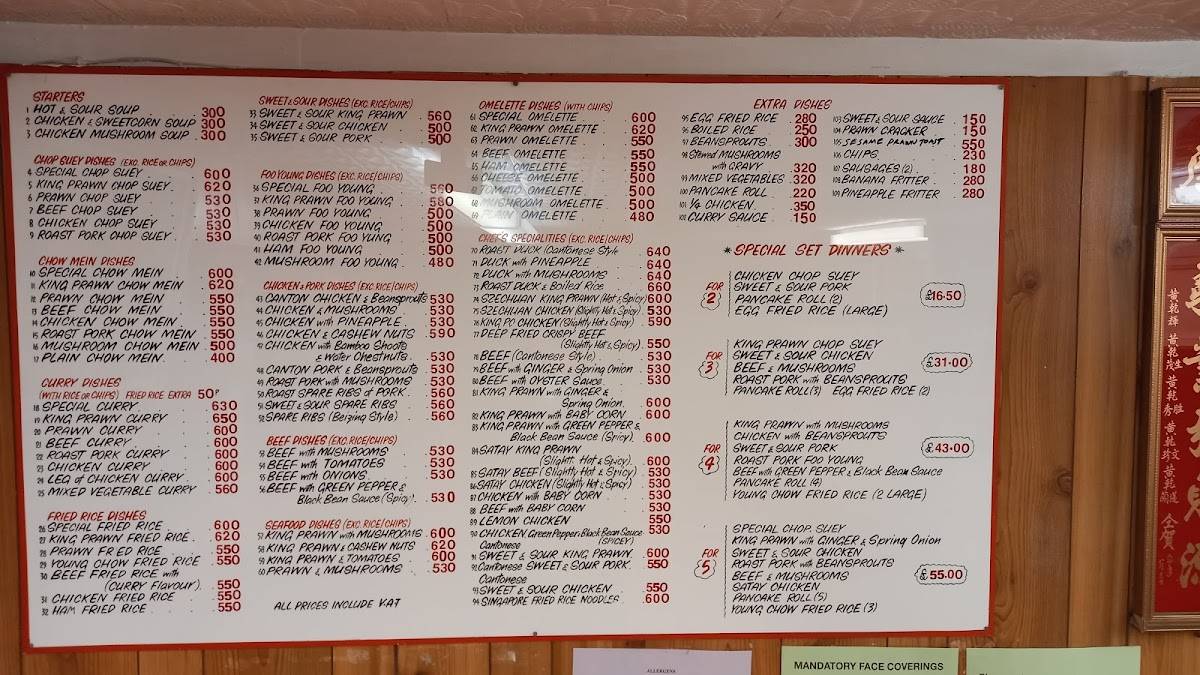 STARTERS
1 HOT & SOUR SOUP 300
2 CHICKEN & SWEETCORN SOUP 300
3 CHICKEN MUSHROOM SOUP 300
CHOP SUEY DISHES (EXC. RICE OR CHIPS)
4 SPECIAL CHOP SUEY 600
5 KING PRAWN CHOP SUEY 620
6 PRAWN CHOP SUEY 530
7 BEEF CHOP SUEY 530
8 CHICKEN CHOP SUEY 530
9 ROAST PORK CHOP SUEY 530
CHOW MEIN DISHES
10 SPECIAL CHOW MEIN 600
11 KING PRAWN CHOW MEIN 620
12 PRAWN CHOW MEIN 550
13 BEEF CHOW MEIN 550
14 CHICKEN CHOW MEIN 550
15 ROAST PORK CHOW MEIN 550
16 MUSHROOM CHOW MEIN 500
17 PLAIN CHOW MEIN 400
CURRY DISHES
(WITH RICE OR CHIPS) FRIED RICE EXTRA 50P
18 SPECIAL CURRY 630
19 KING PRAWN CURRY 650
20 PRAWN CURRY 600
21 BEEF CURRY 600
22 ROAST PORK CURRY 600
23 CHICKEN CURRY 600
24 LEG of CHICKEN CURRY 600
25 MIXED VEGETABLE CURRY 560
FRIED RICE DISHES
26 SPECIAL FRIED RICE 600
27 KING PRAWN FRIED RICE 620
28 PRAWN FRIED RICE 550
29 YOUNG CHOW FRIED RICE 550
30 BEEF FRIED RICE with
(CURRY Flavour) 550
31 CHICKEN FRIED RICE 550
32 HAM FRIED RICE 550
SWEET & SOUR DISHES (EXC. RICE/CHIPS)
33 SWEET & SOUR KING PRAWN 560
34 SWEET & SOUR CHICKEN 500
35 SWEET & SOUR PORK 500
FOO YOUNG DISHES (EXC. RICE/CHIPS)
36 SPECIAL FOO YOUNG 560
37 KING PRAWN FOO YOUNG 580
38 PRAWN FOO YOUNG 500
39 CHICKEN FOO YOUNG 500
40 ROAST PORK FOO YUNG 500
41 HAM FOO YOUNG 500
42 MUSHROOM FOO YOUNG 480
CHICKEN & PORK DISHES (EXC. RICE/CHIPS)
43 CANTON CHICKEN & Beansprouts 530
44 CHICKEN & MUSHROOMS 530
45 CHICKEN with PINEAPPLE 530
46 CHICKEN & CASHEW NUTS 590
47 CHICKEN with Bamboo Shoots
& Water Chestnuts 530
48 CANTON PORK & Beansprouts 530
49 ROAST PORK with MUSHROOMS 530
50 ROAST SPARE RIBS of PORK 560
51 SWEET & SOUR SPARE RIBS 560
52 SPARE RIBS (Beizing Style) 560
BEEF DISHES (EXC. RICE/CHIPS)
53 BEEF with MUSHROOMS 530
54 BEEF with TOMATOES 530
55 BEEF with ONIONS 530
56 BEEF with GREEN PEPPER &
Black Bean Sauce (Spicy) 530
SEAFOOD DISHES (EXC. RICE/CHIPS)
57 KING PRAWN with MUSHROOMS 600
58 KING PRAWN & CASHEW NUTS 620
59 KING PRAWN & TOMATOES 600
60 PRAWN & MUSHROOMS 530
ALL PRICES INCLUDE V.A.T
OMELETTE DISHES (WITH CHIPS)
61 SPECIAL OMELETTE 600
62 KING PRAWN OMELETTE 620
63 PRAWN OMELETTE 550
64 BEEF OMELETTE 550
65 HAM OMELETTE 550
66 CHEESE OMELETTE 500
67 TOMATO OMELETTE 500
68 MUSHROOM OMELETTE 500
69 PLAIN OMELETTE 480
CHEF'S SPECIALITIES (EXC. RICE/CHIPS)
70 ROAST DUCK (Cantonese Style 640
71 DUCK with PINEAPPLE 640
72 DUCK with MUSHROOMS 640
73 ROAST DUCK & Boiled Rice 660
74 SZECHUAN KING PRAWN (Hot & Spicy) 600
75 SZECHUAN CHICKEN (Slightly Hot & Spicy) 530
76 KING PO CHICKEN (Slightly Hot & Spicy) 590
77 DEEP FRIED CRISPY BEEF
(Slightly Hot & Spicy) 550
78 BEEF (Cantonese Style) 530
79 BEEF with GINGER & Spring Onion 530
80 BEEF with OYSTER Sauce 530
81 KING PRAWN with GINGER &
Spring Onion 600
82 KING PRAWN with BABY CORN 600
83 KING PRAWN with GREEN PEPPER &
Black Bean Sauce (Spicy) 600
84 SATAY KING PRAWN
(Slight. Hot & Spicy) 600
85 SATAY BEEF (Slightly Hot & Spicy) 530
86 SATAY CHICKEN (Slightly Hot & Spicy) 530
87 CHICKEN with BABY CORN 530
88 BEEF with BABY CORN 530
89 LEMON CHICKEN 550
90 CHICKEN Green Pepper & Black Bean Sauce
(SPICEY) 530
Cantonese
91 SWEET & SOUR KING PRAWN 600
92 Cantonese SWEET & SOUR PORK 550
Cantonese
93 SWEET & SOUR CHICKEN 550
94 SINGAPORE FRIED RICE NOODLES 600
EXTRA DISHES
95 EGG FRIED RICE 280
96 BOILED RICE 250
97 BEANSPROUTS 300
98 Stewed MUSHROOMS
with GRAVY 320
99 MIXED VEGETABLES 320
100 PANCAKE ROLL 220
101 1/4 CHICKEN 350
102 CURRY SAUCE 150
103 SWEET & SOUR SAUCE 150
104 PRAWN CRACKER 150
105 SESAME PRAWN TOAST 550
106 CHIPS 230
107 SAUSAGES (2) 180
108 BANANA FRITTER 280
109 PINEAPPLE FRITTER 280
* SPECIAL SET DINNERS *
FOR 2
CHICKEN CHOP SUEY
SWEET & SOUR PORK
PANCAKE ROLL (2)
EGG FRIED RICE (LARGE)
£16.50
FOR 3
KING PRAWN CHOP SUEY
SWEET & SOUR CHICKEN
BEEF & MUSHROOMS
ROAST PORK with BEANSPROUTS
PANCAKE ROLL (3) EGG FRIED RICE (2)
£31.00
FOR 4
KING PRAWN with MUSHROOMS
CHICKEN with BEANSPROUTS
SWEET & SOUR PORK
ROAST PORK FOO YOUNG
BEEF with GREEN PEPPER & Black Bean Sauce
PANCAKE ROLL (4)
YOUNG CHOW FRIED RICE (2 LARGE)
£43.00
FOR 5
SPECIAL CHOP SUEY
KING PRAWN with GINGER & Spring Onion
SWEET & SOUR CHICKEN
ROAST PORK with BEANSPROUTS
BEEF & MUSHROOMS
SATAY CHICKEN
PANCAKE ROLL (5)
YOUNG CHOW FRIED RICE (3)
£55.00
ALLERGENS
MANDATORY FACE COVERINGS